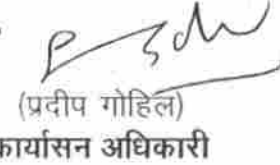 (प्रदीप गोहिल)
कार्यासन अधिकारी